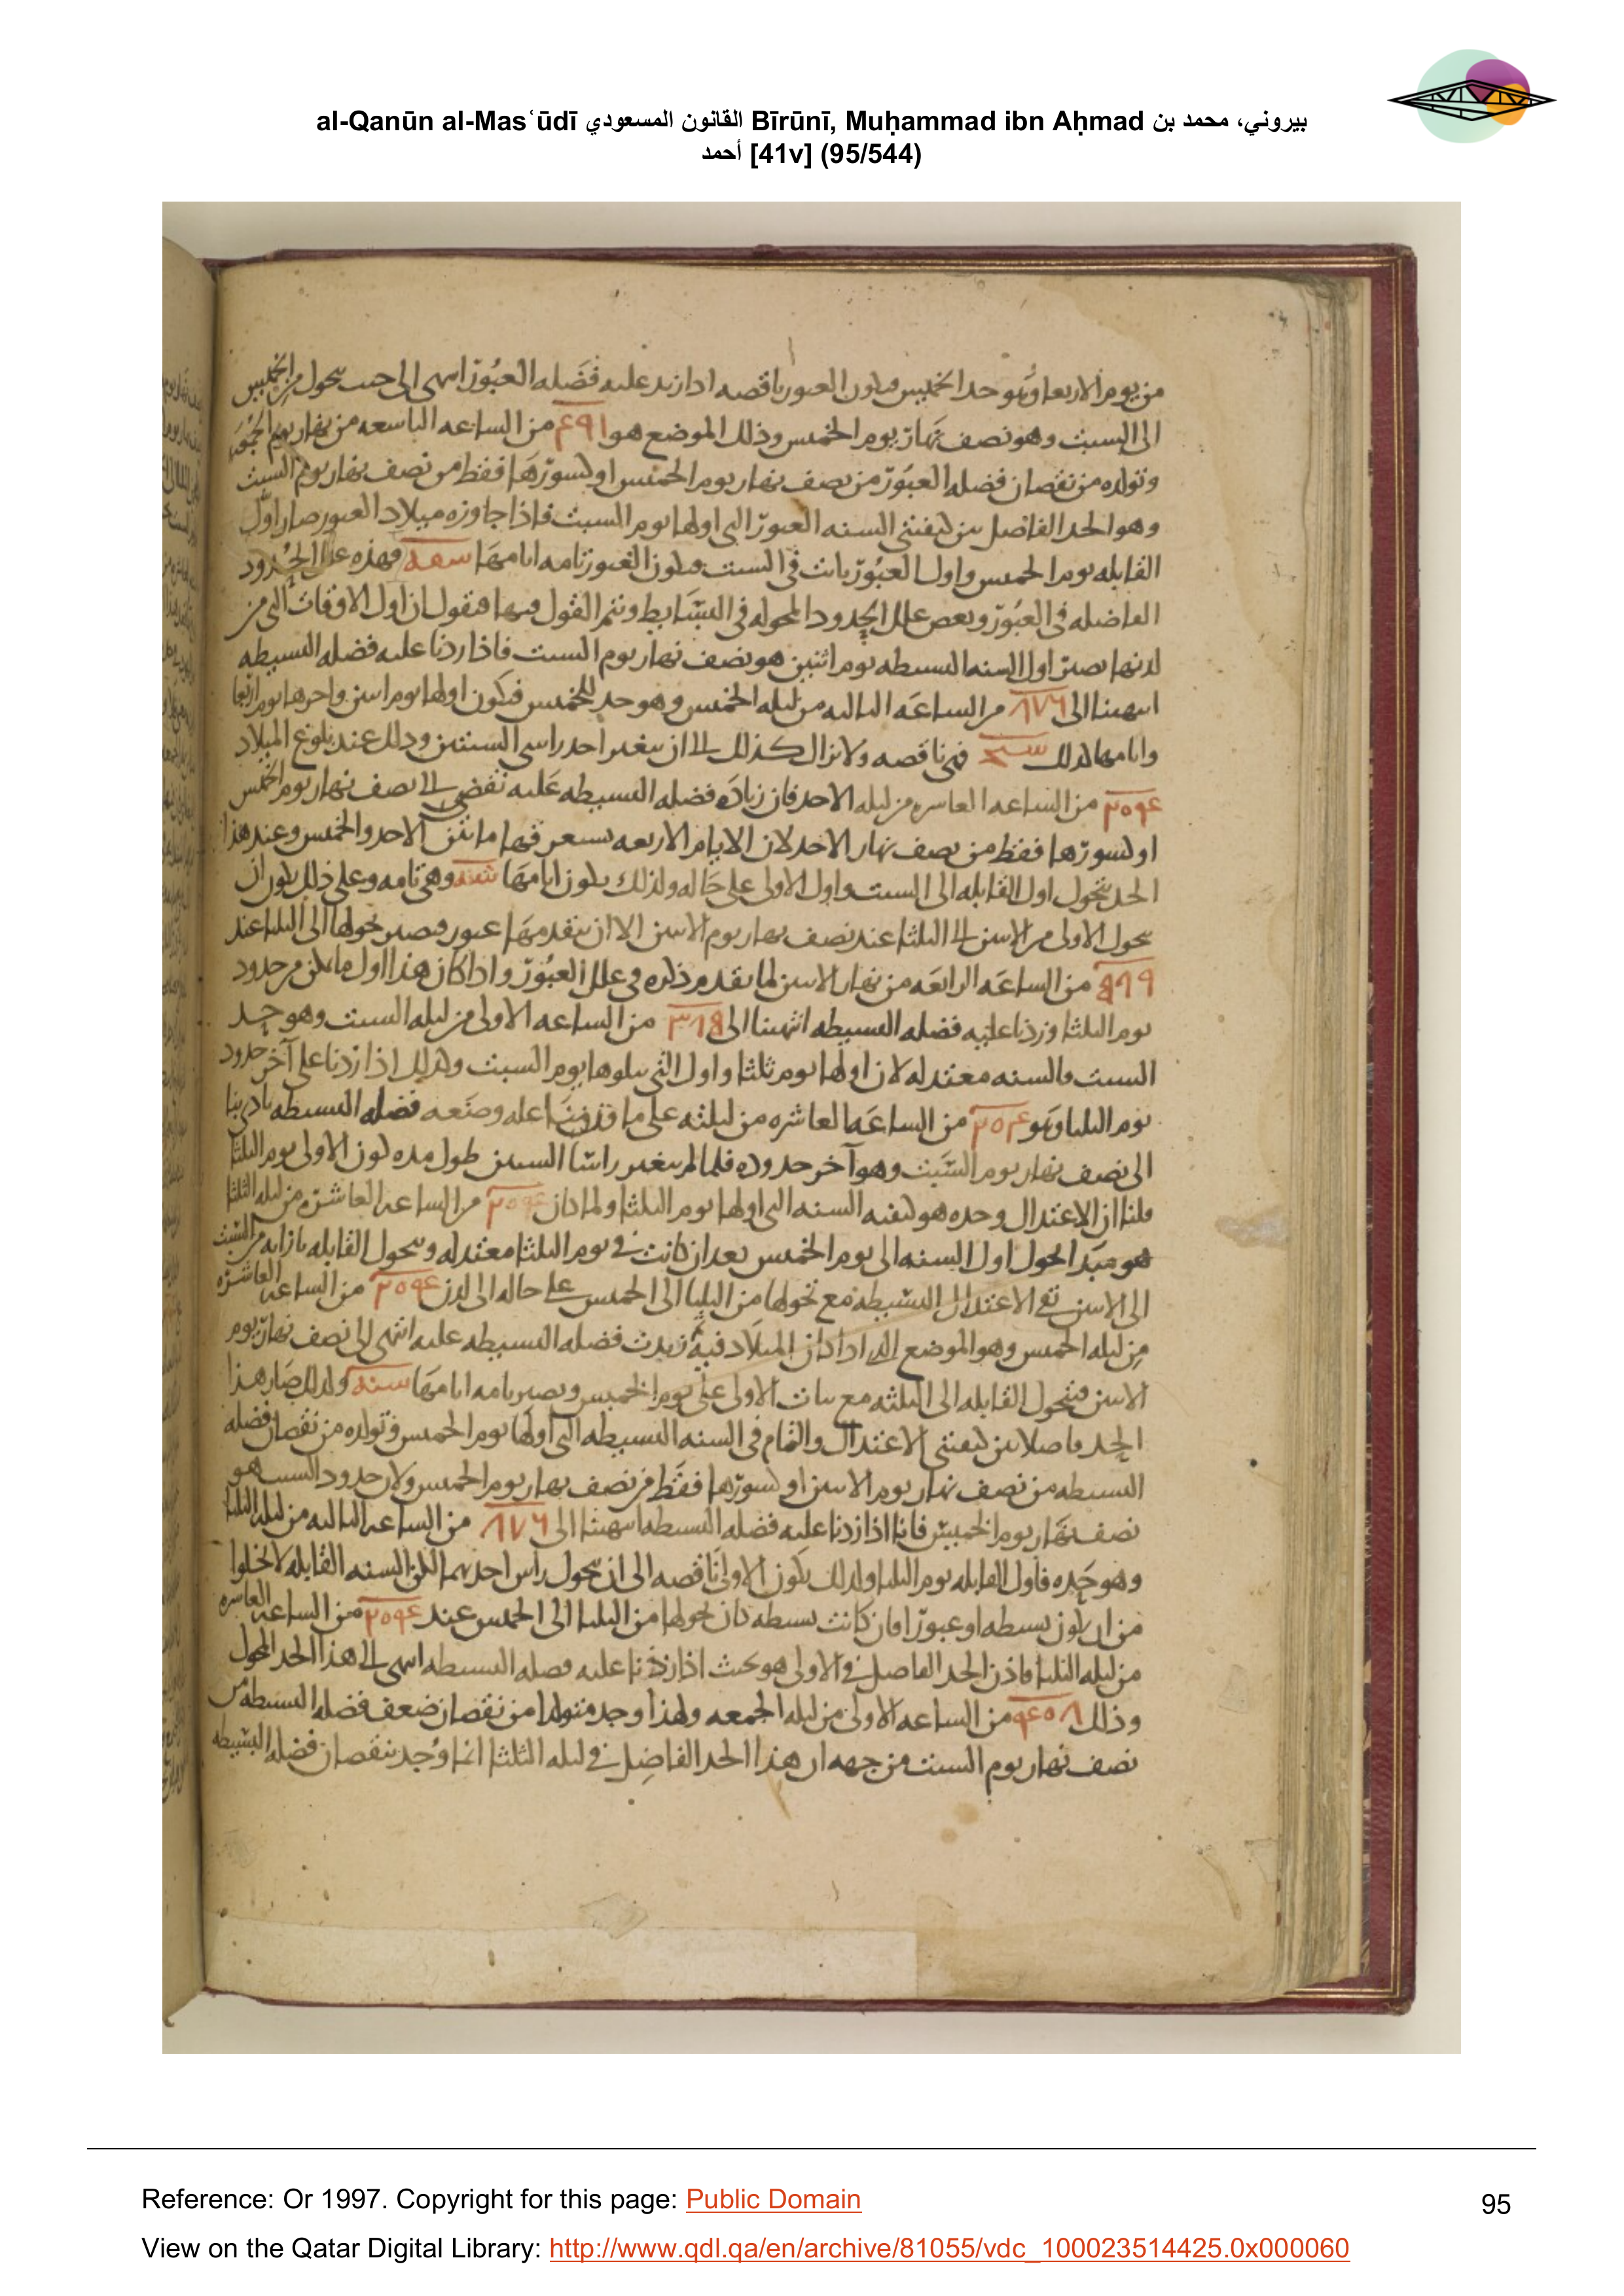 al-Qanūn al-Masʿūdī القانون المسعودي Bīrūnī, Muḥammad ibn Aḥmad بيروني، محمد بن
أحمد [41v] (95/544)
من يوم الاربعا وهو حد الخميس العبور ناقصه اذا زيد عليه فضله العبور انتهى الى حيث يتحول من الخميس
الى السبت وهو نصف نهار يوم الخميس وذلك الموضع هو ٤٩١ من الساعه التاسعه من نهار يوم الجمعه
وتولده من نقصان فضله العبور من نصف نهار يوم الخميس او كسورها فقط من نصف نهار يوم السبت
وهو الحد الفاصل بين كيفيتى السنه العبور التى اولها يوم السبت فاذا جاوزه ميلاد العبور صار اول
القابله يوم الخميس واول العبور ثابت فى السبت العبور تامه ايامها فهذه علل الحدود
الفاصله فى العبور وبعض علل الحدود المحوله فى البسايط ونتم القول فيها فنقول ان اول الاوقات التى من
لدنها يصير اول السنه البسيطه يوم اثنين هو نصف نهار يوم السبت فاذا زدنا عليه فضله البسيطه
انتهينا الى ٨٧٦ من الساعه الثالثه من ليله الخميس وهو حد للخميس فيكون اولها يوم اثنين واخرها يوم اربعا
وايامها لذلك فهى ناقصه ولا تزال كذلك الى ان يتغير احد راسى السنتين وذلك عند بلوغ الميلاد
من الساعه العاشره من ليله الاحد فان زياده فضله البسيطه عليه تفضى الى نصف نهار يوم الخميس
او كسورها فقط من نصف نهار الاحد لان الايام الاربعه فيها ما بين الاحد والخميس وعند هذا
الحد يتحول اول القابله الى السبت واول الاولى على حاله ولذلك يكون ايامها وهى تامه وعلى ذلك يكون الى ان
يتحول الاولى من الاثنين الى الثلثا عند نصف نهار يوم الاثنين الا ان يتقدمها عبور فيصير تحولها الى الثلثا عند
من الساعه الرابعه من نهار الاثنين لما تقدم ذكره فى علل العبور واذا كان هذا اول ما يمكن من حدود
يوم الثلثا وزدنا عليه فضله البسيطه انتهينا الى من الساعه الاولى من ليله السبت وهو حد
السبت فالسنه معتدله لان اولها يوم ثلثا واول التى يتلوها يوم السبت وكذلك اذا زدنا على آخر حدود
يوم الثلثا وهو من الساعه العاشره من ليلته على ما قدمنا علله وصنعه فضله البسيطه
الى نصف نهار يوم السبت وهو آخر حدوده فلما لم يتغير راسا السنتين طول مده كون الاولى يوم الثلثا
قلنا ان الاعتدال وحده هو كيفيه السنه التى اولها يوم الثلثا ولما كان من الساعه العاشره من ليله الثلثا
هو مبدا تحول اول السنه الى يوم الخميس بعد ان كانت فى يوم الثلثا معتدله وتحول القابله بازايه من السبت
الى الاثنين بقى الاعتدال للبسيطه مع تحولها من الثلثا الى الخميس على حاله الى لدن من الساعه العاشره
من ليله الخميس وهو الموضع الذى اذا كان الميلاد فيه ثم زيدت فضله البسيطه عليه انتهى الى نصف نهار يوم
الاثنين فيتحول القابله الى الثلثه مع ثبات الاولى على يوم الخميس ويصير تامه ايامها ولذلك صار هذا
الحد فاصلا بين كيفيتى الاعتدال والتمام فى السنه البسيطه التى اولها يوم الخميس وتولده من نقصان فضله
البسيطه من نصف نهار يوم الاثنين او كسورها فقط من نصف نهار يوم الخميس ولان حدود السبت هو
نصف نهار يوم الخميس فانا اذا زدنا عليه فضله البسيطه انتهينا الى ٨٧٦ من الساعه الثالثه من ليله الثلثا
وهو حده فاول القابله يوم الثلثا ولذلك يكون الاولى ناقصه الى ان يتحول راس احديهما لكن السنه القابله لا تخلوا
من ان يكون بسيطه او عبورا فان كانت بسيطه كان تحولها من الثلثا الى الخميس عند من الساعه العاشره
من ليله الثلثا فاذن الحد الفاصل فى الاولى هو بحيث اذا زدنا عليه فضله البسيطه انتهى الى هذا الحد المحول
وذلك من الساعه الاولى من ليله الجمعه ولهذا وجد متولدا من نقصان ضعف فضله البسيطه من
نصف نهار يوم السبت من جهه ان هذا الحد الفاصل فى ليله الثلثا انما وجد بنقصان فضله البسيطه
Reference: Or 1997. Copyright for this page: Public Domain
95
View on the Qatar Digital Library: http://www.qdl.qa/en/archive/81055/vdc_100023514425.0x000060